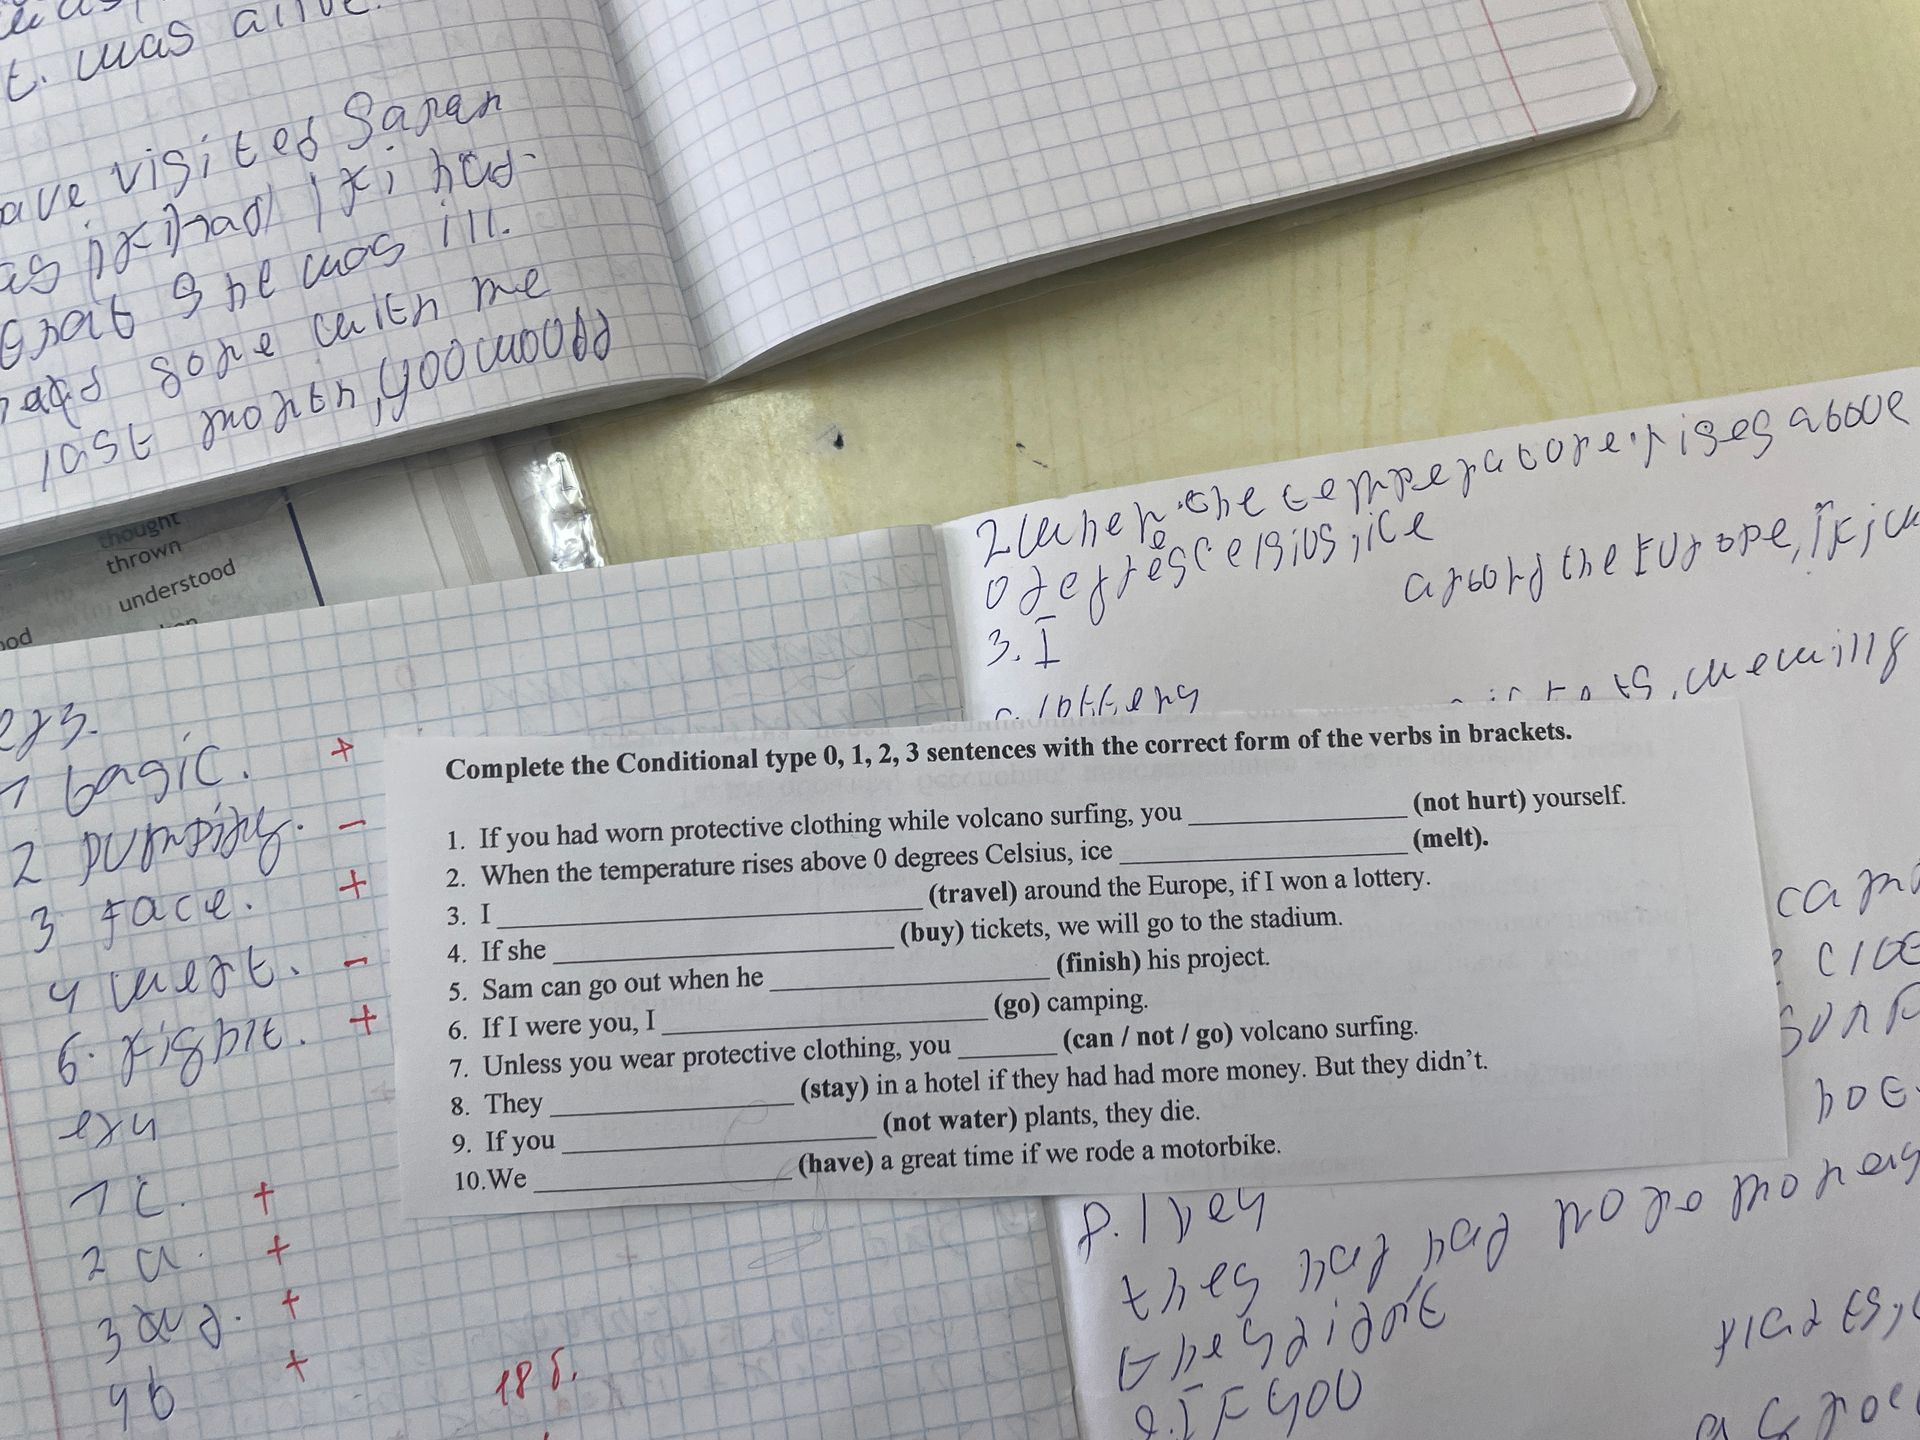 t. was alive.
ave visited Sarah
as if had if i had
that she was ill.
gone with me
last month, you would
thought
thrown
understood
2 When the temperature rises above
0 degrees Celsius, ice
3. I
around the Europe, if i w
lottery
ts, we will g
ex3.
1 basic. +
2 pumping. -
3 face. +
4 went. -
6. fight. +
ex4
1 c. +
2 a. +
3 d. +
4 b +
18 б.
Complete the Conditional type 0, 1, 2, 3 sentences with the correct form of the verbs in brackets.
1. If you had worn protective clothing while volcano surfing, you ____________ (not hurt) yourself.
2. When the temperature rises above 0 degrees Celsius, ice ____________ (melt).
3. I ____________ (travel) around the Europe, if I won a lottery.
4. If she ____________ (buy) tickets, we will go to the stadium.
5. Sam can go out when he ____________ (finish) his project.
6. If I were you, I ____________ (go) camping.
7. Unless you wear protective clothing, you ______ (can / not / go) volcano surfing.
8. They ____________ (stay) in a hotel if they had had more money. But they didn't.
9. If you ____________ (not water) plants, they die.
10.We ____________ (have) a great time if we rode a motorbike.
camp
clo
surf
hot
8. They
they had had more money
they didn't
9. If you
plants,
a great